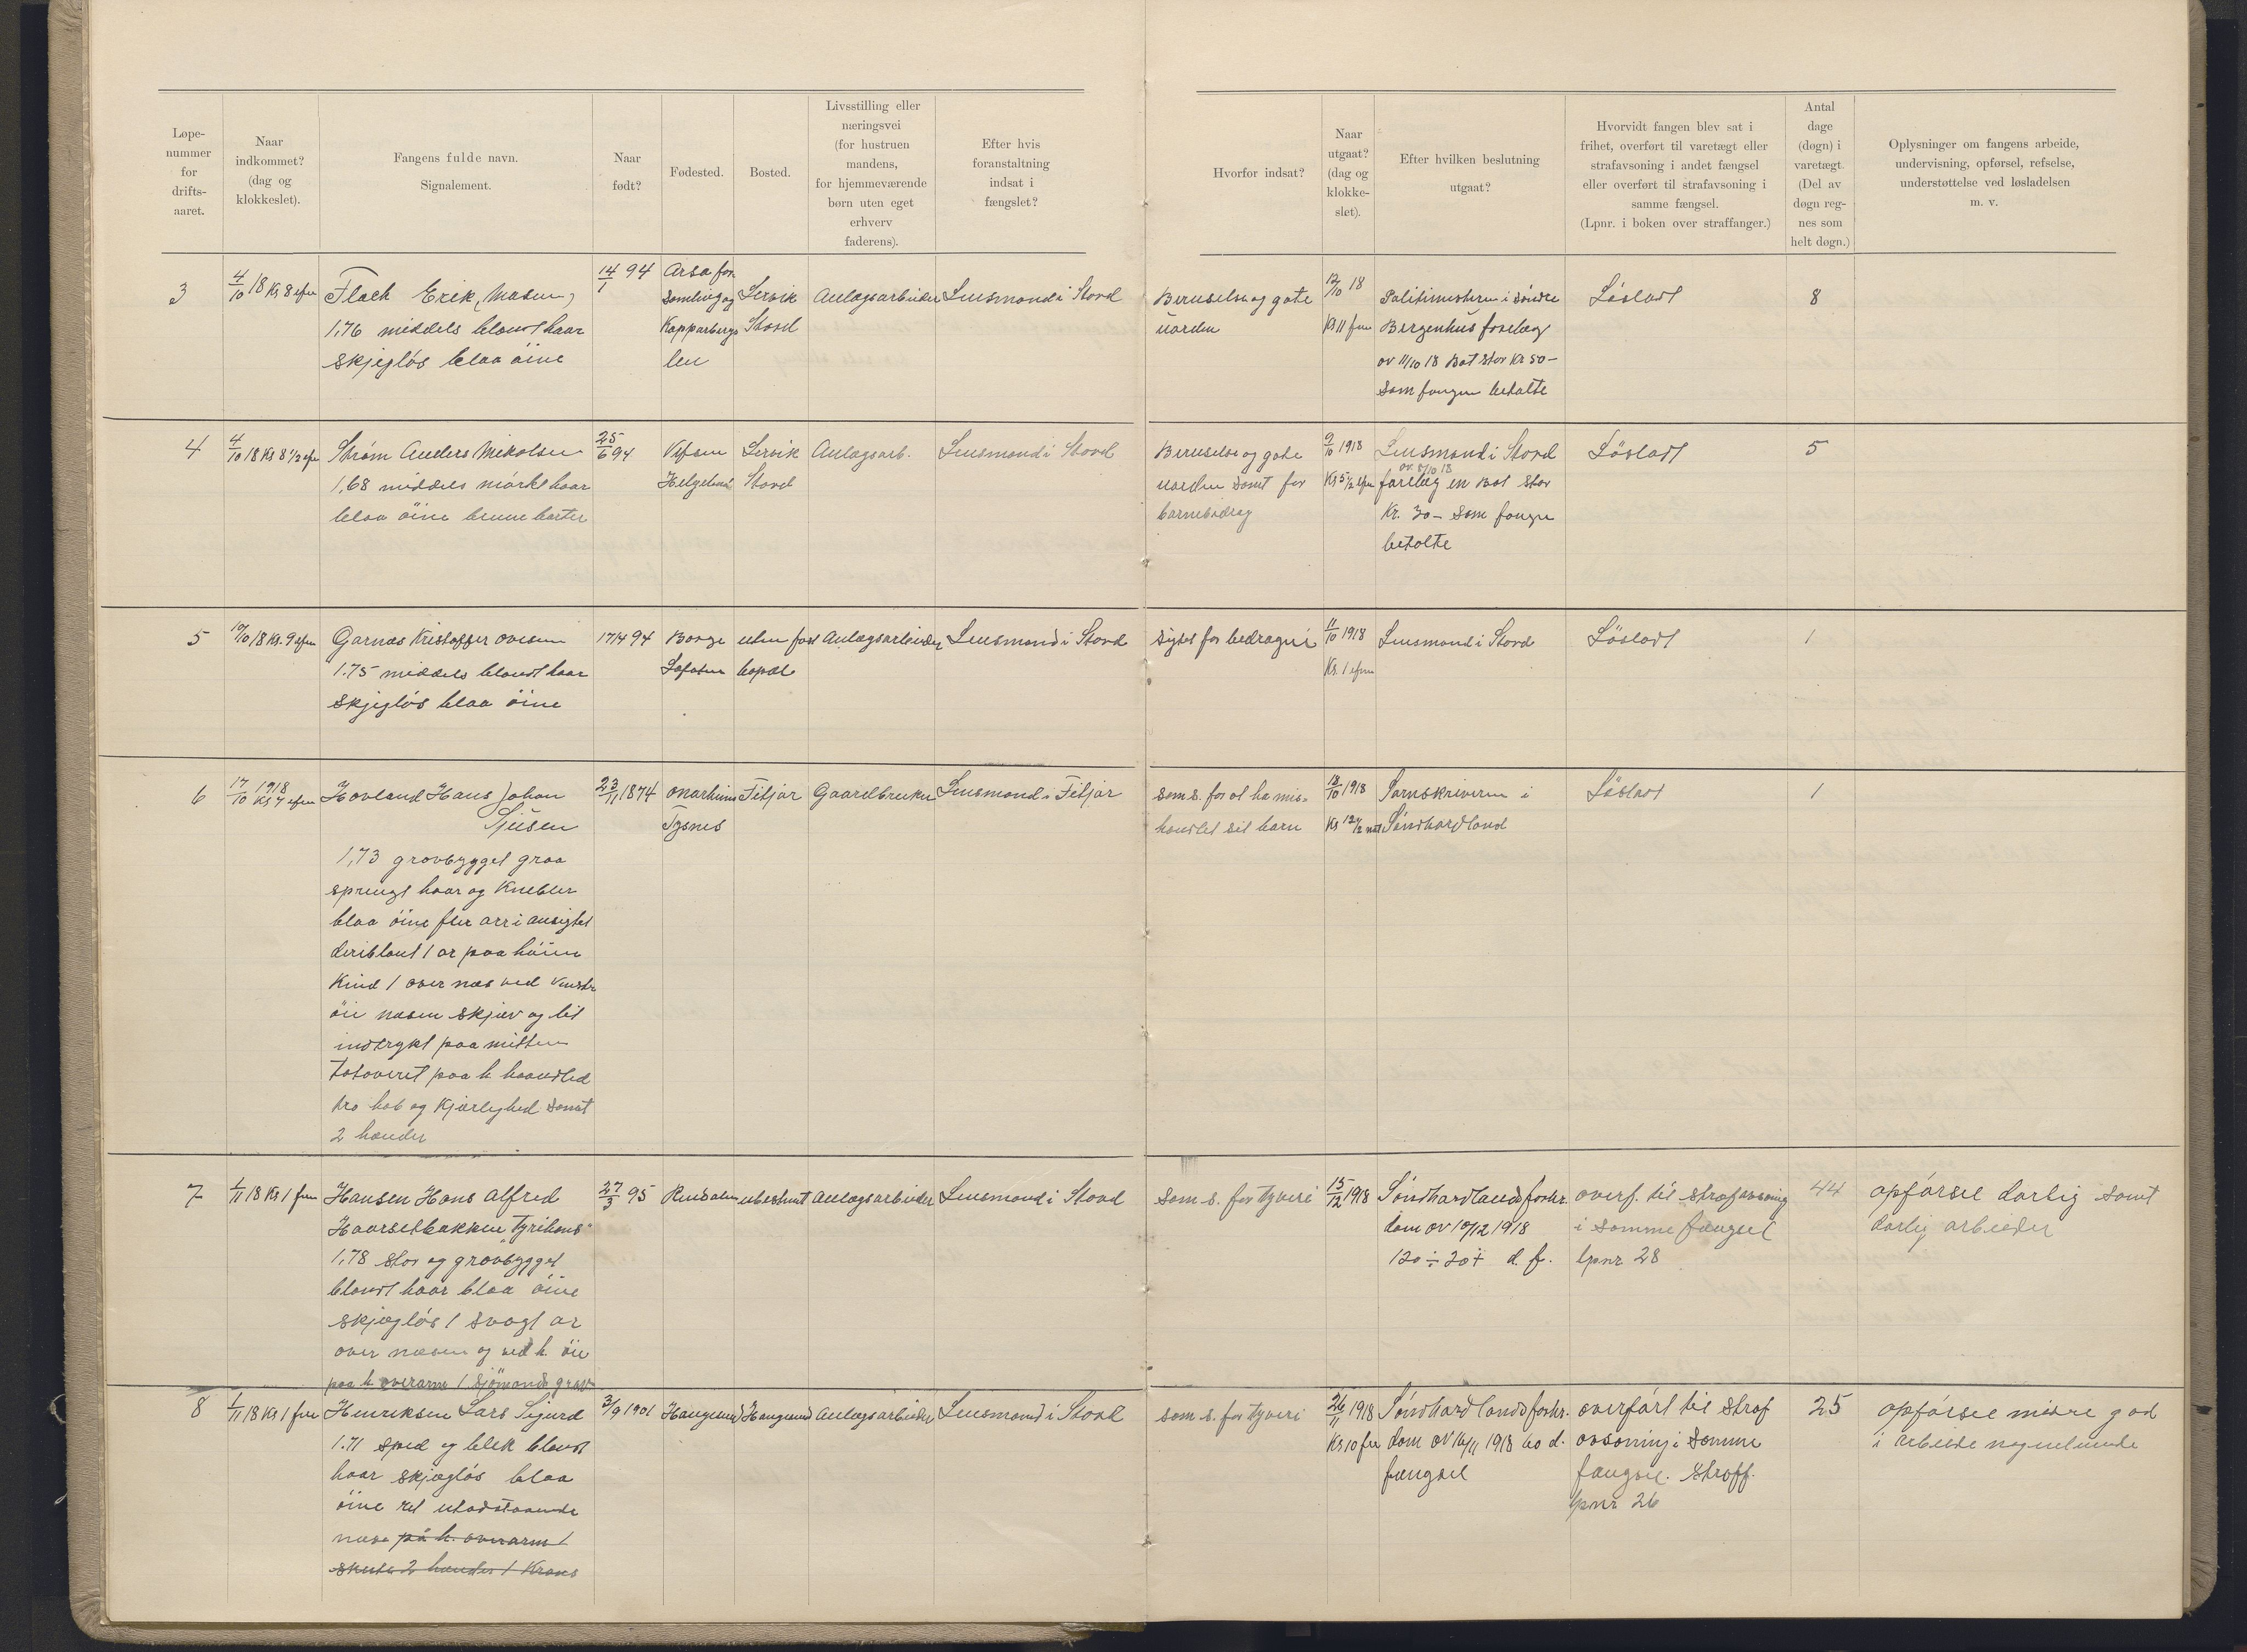 Løpe-
nummer
for
drifts-
aaret.
Naar
indkommet?
(dag og
klokkeslet).
Fangens fulde navn.
Signalement.
Naar
født?
Fødested.
Bosted.
Livsstilling eller
næringsvei
(for hustruen
mandens,
for hjemmeværende
børn uten eget
erhverv
faderens).
Efter hvis
foranstaltning
indsat i
fængslet?
Hvorfor indsat?
Naar
utgaat?
(dag og
klokke-
slet).
Efter hvilken beslutning
utgaat?
Hvorvidt fangen blev sat i
frihet, overført til varetægt eller
strafavsoning i andet fængsel
eller overført til strafavsoning i
samme fængsel.
(Lpnr. i boken over straffanger.)
Antal
dage
(døgn) i
varetægt.
(Del av
døgn reg-
nes som
helt døgn.)
Oplysninger om fangens arbeide,
undervisning, opførsel, refselse,
understøttelse ved løsladelsen
m. v.
3
4/10 18 Kl 8 efm
Flach Erik,
1,76 middels blondt haar
skjegløs blaa öine
14/1 94
Arsa for
samling og
Kopparbergs
len
Lervik
Stord
Anlægsarbeider
Lensmand i Stord
Beruselse og gate
uorden
12/10 18
Kl 11 fm
Politimesteren i Söndre
Bergenhus forelæg
ov 11/10 18 Bot stor Kr 50-
som fangen betalte
Lösladt
8
4
4/10 18 Kl 8 1/2 efm
Strøm Anders Mikalsen
1,68 middels mörkt haar
blaa öine brune barter
25/6 94
Vefsen
Helgeland
Lervik
Stord
Anlægsarb.
Lensmand i Stord
Beruselse og gate
uorden samt for
barnebidrag
9/10 1918
Kl 5 1/2 efm
Lensmand i Stord
ov. 8/10 18
forelæg en Bot stor
Kr. 30- som fangen
betalte
Lösladt
5
5
10/10 18 Kl. 9 efm
Garnæs Kristoffer Ovesen
1.75 middels blondt haar
skjegløs blaa öine
17/4 94
Borge
Lofoten
uten fast
bopæl
Anlægsarbeider
Lensmand i Stord
Sigtet for bedrageri
11/10 1918
Kl. 1 efm
Lensmand i Stord
Lösladt
1
6
17/10 1918
Kl 7 efm
Hovland Hans Johan
1,73 grovbygget graa
sprengt haar og Knebler
blaa öine fler arr i ansigtet
deriblant 1 ar paa höire
Kind 1 over næs ved venstre
öie næsen skjæv og lit
indtrykt paa midten
tatoveret paa h haandled
tro hab og Kjærlighed samt
2 hænder
23/11 1874
Onarheim
Tysnes
Fitjar
Gaardbruker
Lensmand i Fitjar
som s. for at ha mis-
handlet sit barn
18/10 1918
Kl 12 1/2 nat
Sornskriveren i
Söndhordland
Lösladt
1
7
1/11 18 Kl 1 fm
Hansen Hans Alfred
Haarsetbakken "Tyrihans"
1,78 stor og grovbygget
blondt haar blaa öine
skjegløs 1 svagt ar
over næsen og ved h. öie
paa h overarm 1 Sjömands grav
27/3 95
Rindalen
ubestemt
Anlægsarbeider
Lensmand i Stord
som s. for tyveri
15/12 1918
Söndhordlands forhr.
dom ov 10/12 1918
120 ÷ 20 + d. f.
overf. til strafavsoning
i samme fængsel
lpnr 28
44
opførsel darlig samt
darlig arbeider
8
1/11 18 Kl 1 fm
Henriksen Lars Sigurd
1.71 sped og blek blondt
haar skjegløs blaa
öine ret utadstaaende
næse på h. overarm 1
skute 2 hænder 1 Krans
3/9 1901
Haugesund
Haugesund
Anlægsarbeider
Lensmand i Stord
som s. for tyveri
26/11 1918
Kl 10 fm
Söndhordlands forhr.
dom ov 16/11 1918 60 d.
fængsel
overført til straf
ovsoning i samme
fængsel. Straff.
lpnr 26
25
opførsel mindre god
i arbeide nogenlunde